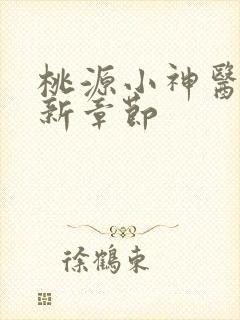 桃源小神醫
新章節
徐鶴東